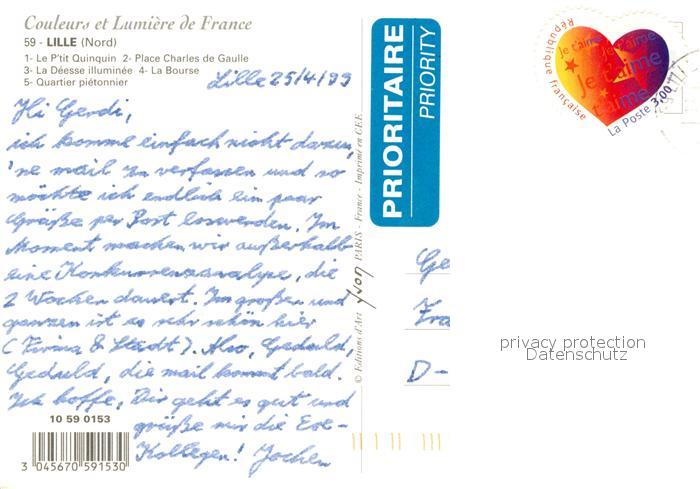 Couleurs et Lumière de France
59 - LILLE (Nord)
1- Le P'tit Quinquin 2- Place Charles de Gaulle
3- La Déesse illuminée 4- La Bourse
5- Quartier piétonnier
Lille 25/4/99
Hi Gerdi,
ich komme einfach nicht dazu,
'ne mail zu verfassen und so
möchte ich endlich ein paar
Grüße per Post loswerden. Im
Moment machen wir außerhalb
eine Konkurrenzanalyse, die
2 Wochen dauert. Im großen und
ganzen ist es sehr schön hier
(Firma & Stadt). Also, Geduld,
Geduld, die mail kommt bald.
Ich hoffe, Dir geht es gut und
grüße mir die Eve-
Kollegen! Jochen
10 59 0153
3 045670 591530
© Editions d'Art Yvon PARIS - France - Imprimé en CEE
PRIORITAIRE
PRIORITY
République française
Je t'aime
Je t'aime
Je t'aime
t'aime
La Poste 3,00
Ge
Fra
D-
privacy protection
Datenschutz